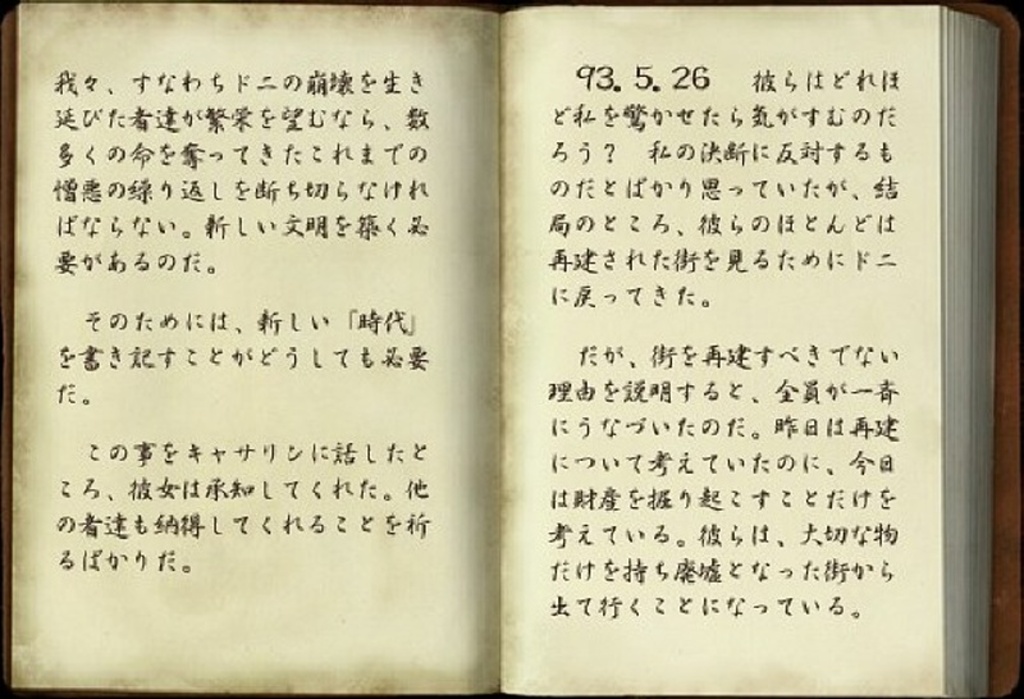 我々、すなわちドニの崩壊を生き
延びた者達が繁栄を望むなら、数
多くの命を奪ってきたこれまでの
憎悪の繰り返しを断ち切らなけれ
ばならない。新しい文明を築く必
要があるのだ。
そのためには、新しい「時代」
を書き記すことがどうしても必要
だ。
この事をキャサリンに話したと
ころ、彼女は承知してくれた。他
の者達も納得してくれることを祈
るばかりだ。
93. 5. 26 彼らはどれほ
ど私を驚かせたら気がすむのだ
ろう? 私の決断に反対するも
のだとばかり思っていたが、結
局のところ、彼らのほとんどは
再建された街を見るためにドニ
に戻ってきた。
だが、街を再建すべきでない
理由を説明すると、全員が一斉
にうなづいたのだ。昨日は再建
について考えていたのに、今日
は財産を掘り起こすことだけを
考えている。彼らは、大切な物
だけを持ち廃墟となった街から
出て行くことになっている。